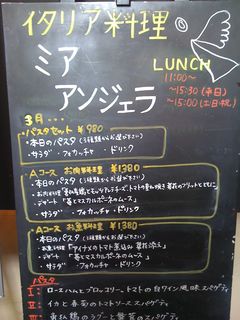 イタリア料理
ミア
アンジェラ
LUNCH
11:00〜
〜15:30 (平日)
〜15:00 (土日・祝)
3月…
パスタセット ¥980
・本日のパスタ (3種類からお選び下さい)
・サラダ ・フォカッチャ ・ドリンク
Aコース お肉料理 ¥1380
・本日のパスタ (3種類からお選び下さい)
・デザート 「苺とマスカルポーネのムース」
・サラダ ・フォカッチャ ・ドリンク
Aコース お魚料理 ¥1380
・本日のパスタ (3種類からお選び下さい)
・デザート 「苺とマスカルポーネのムース」
・サラダ ・フォカッチャ ・ドリンク
パスタ
I: ロースハムとブロッコリー、トマトの白ワイン風味 スパゲティ
II イカと春菊のトマトソース スパゲティ